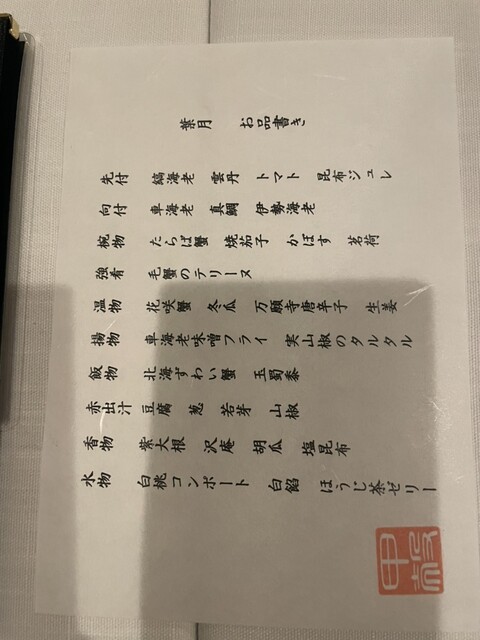 葉月　お品書き
先付　鎬海老　雲丹　トマト　昆布ジュレ
向付　車海老　真鯛　伊勢海老
椀物　たらば蟹　焼茄子　かぼす　茗荷
強肴　毛蟹のテリーヌ
温物　花咲蟹　冬瓜　万願寺唐辛子　生姜
揚物　車海老味噌フライ　実山椒のタルタル
飯物　北海ずわい蟹　玉蜀黍
赤出汁　豆腐　葱　若芽　山椒
香物　紫大根　沢庵　胡瓜　塩昆布
水物　白桃コンポート　白餡　ほうじ茶ゼリー